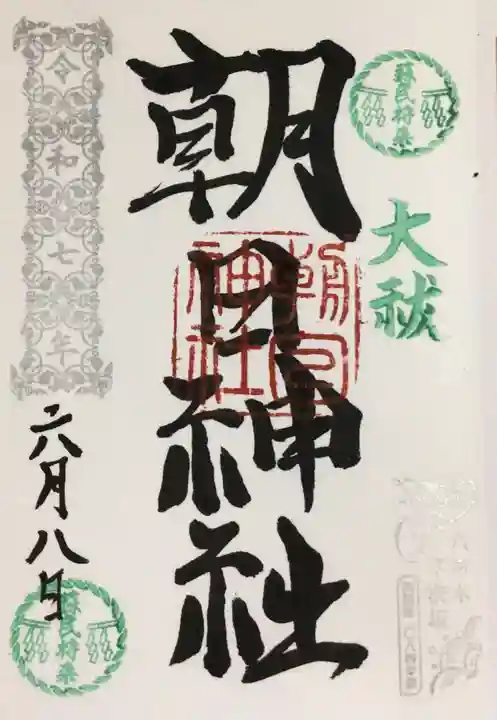 蘇民将来
大祓
朝日神社
朝日神社
令和七年
六月八日
蘇民将来